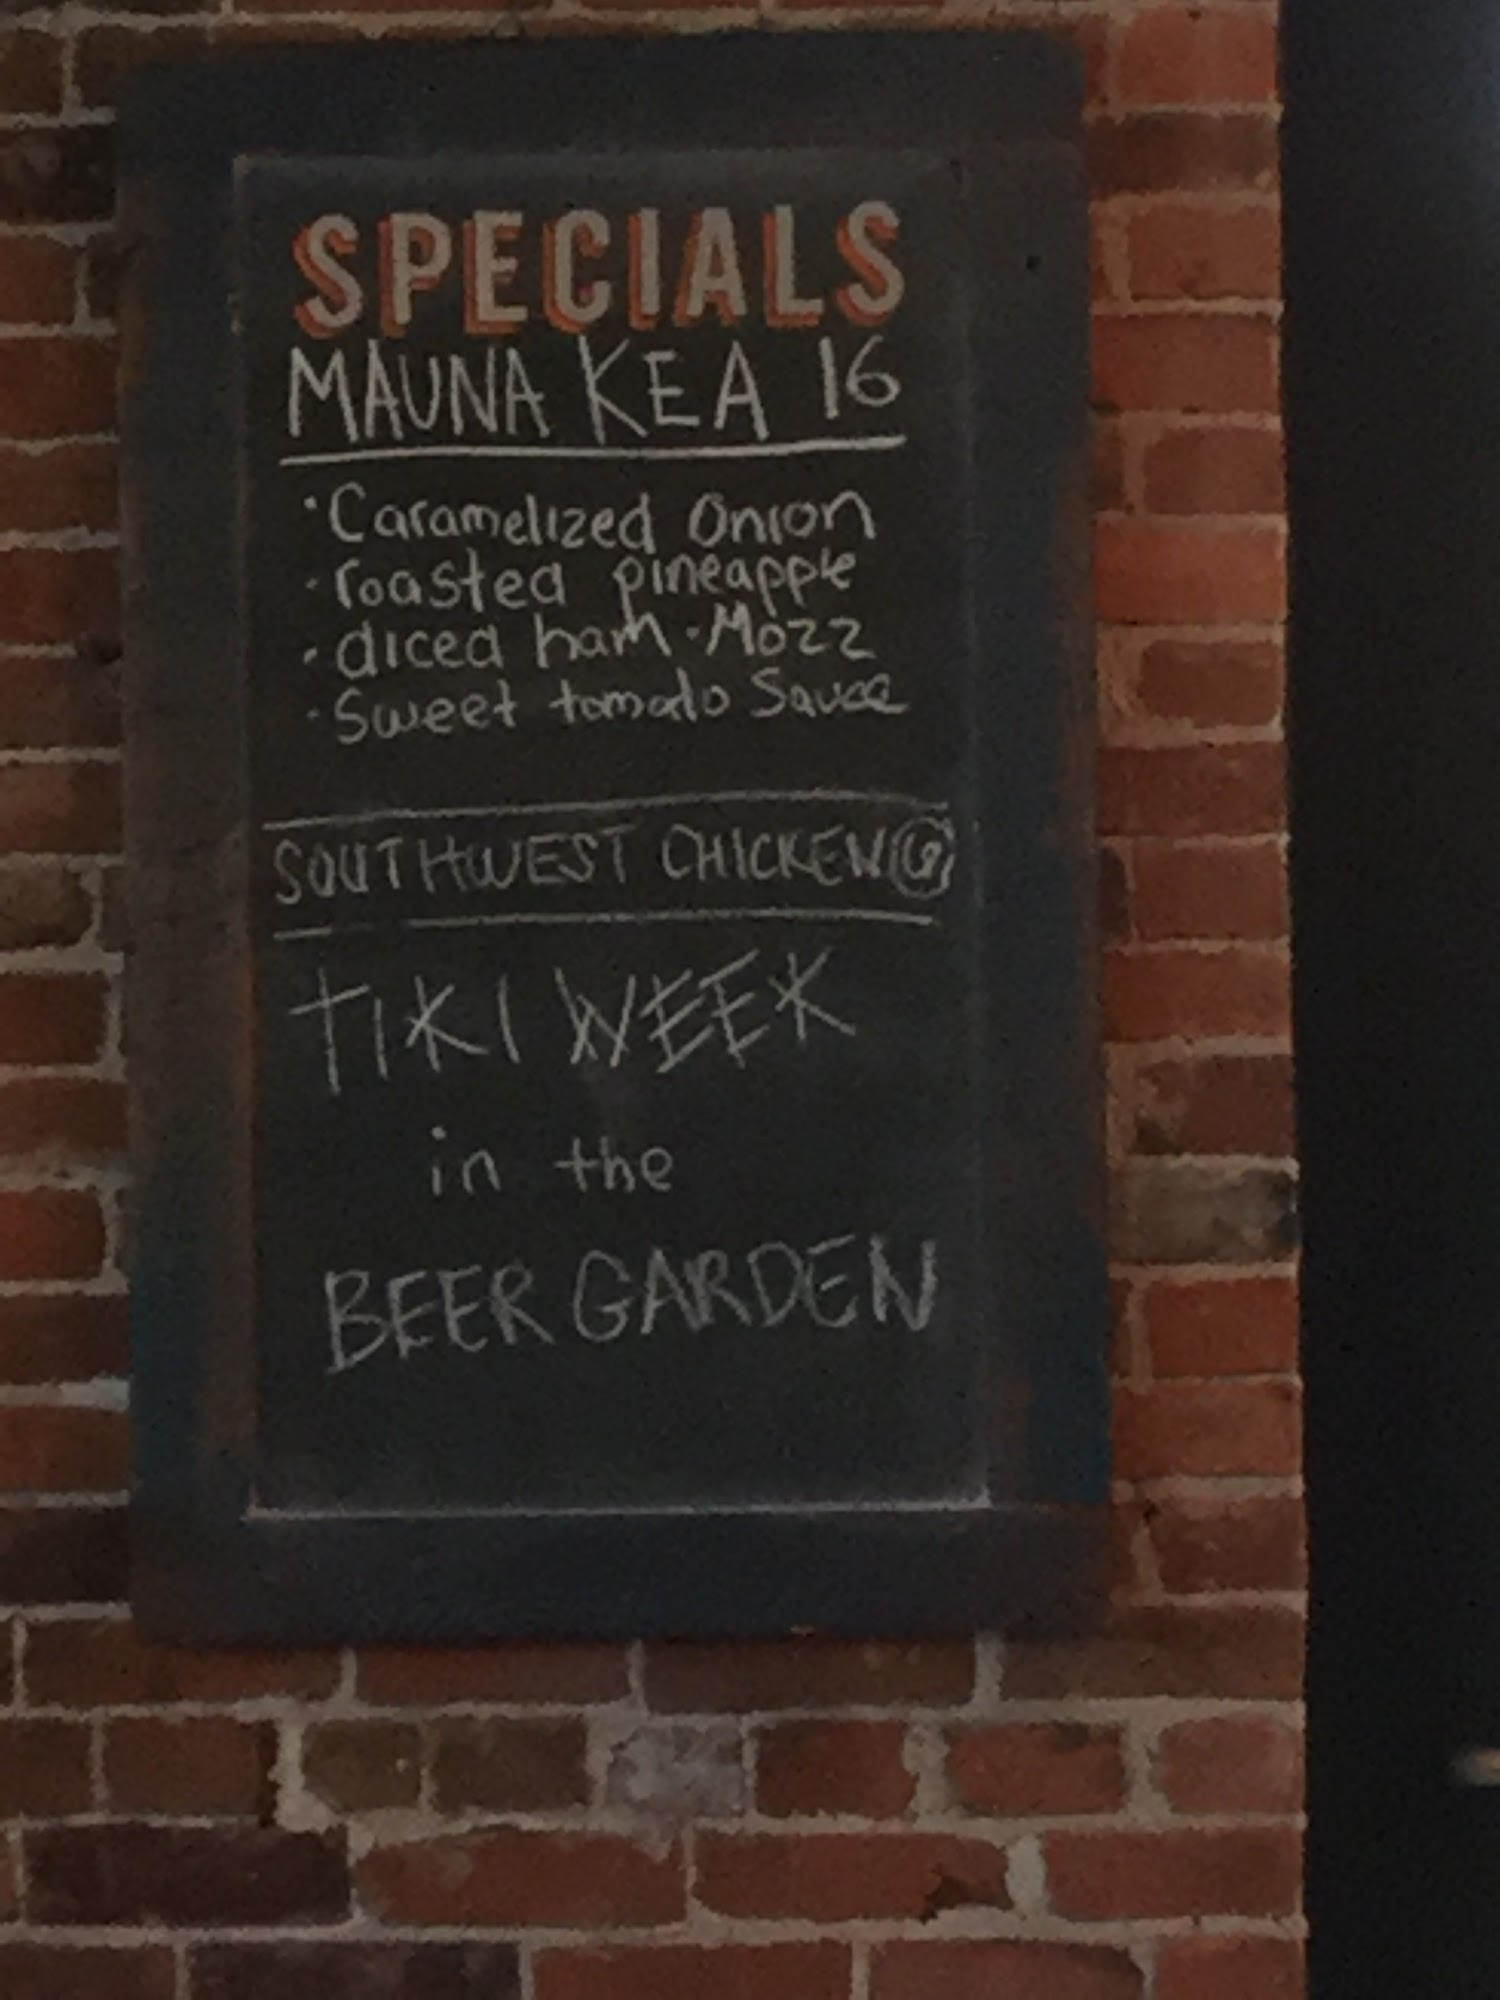 SPECIALS
MAUNA KEA 16
· Caramelized Onion
· roasted pineapple
· diced ham · Mozz
· Sweet tomato Sauce
SOUTHWEST CHICKEN
TIKI WEEK
in the
BEER GARDEN